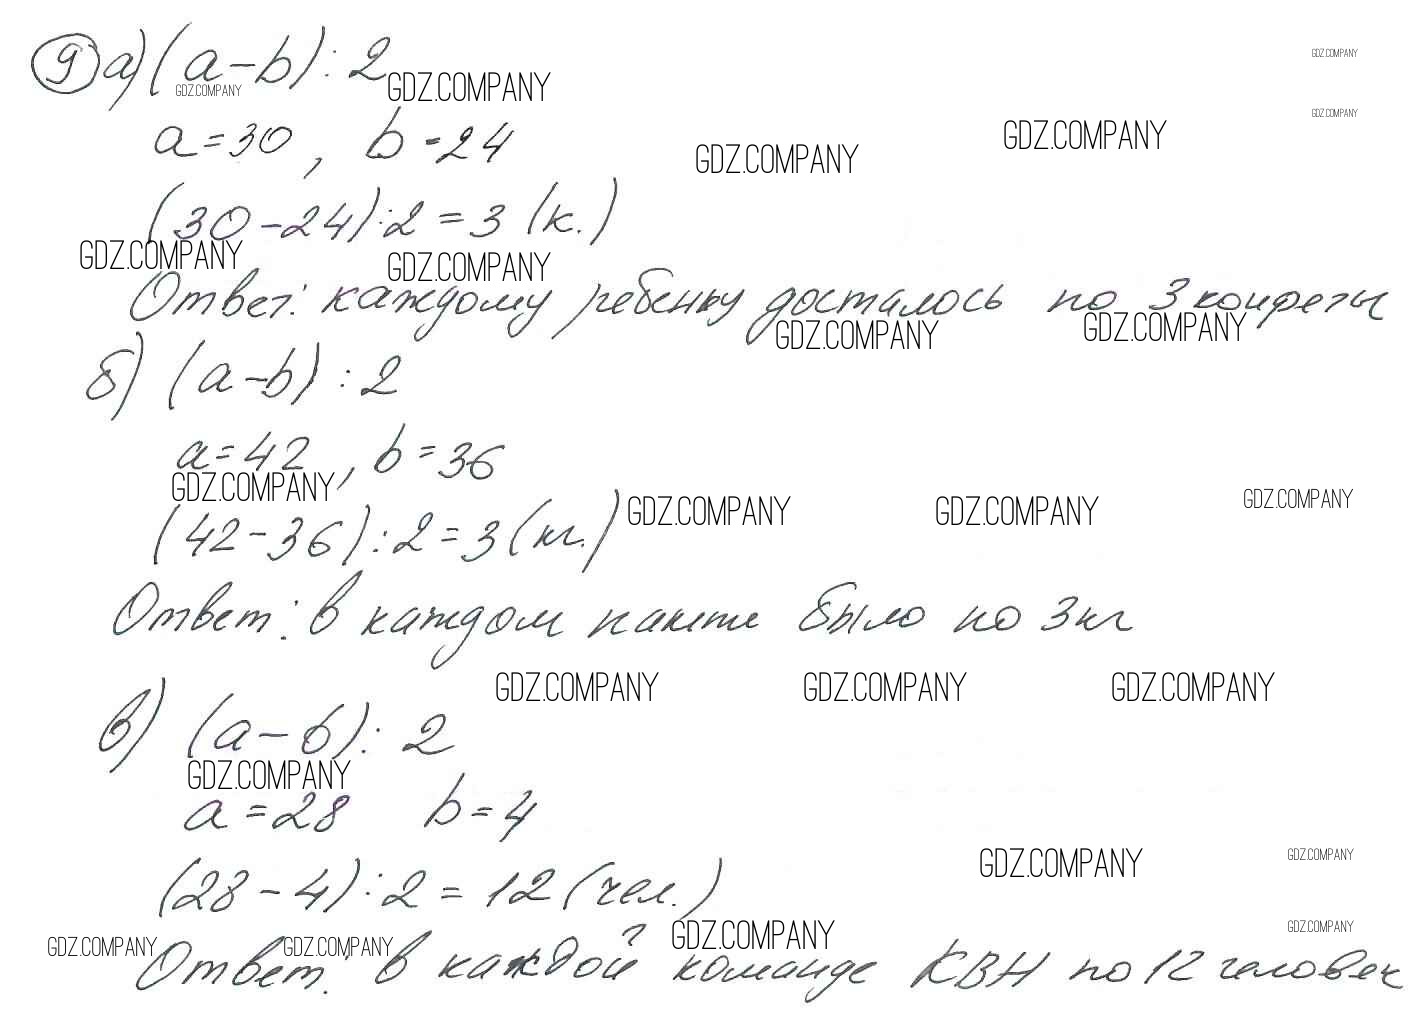 9 а) (a-b):2
GDZ.COMPANY
GDZ.COMPANY
GDZ.COMPANY
GDZ.COMPANY
a=30, b=24
GDZ.COMPANY
GDZ.COMPANY
GDZ.COMPANY
(30-24):2=3 (к.)
GDZ.COMPANY
GDZ.COMPANY
Ответ: каждому ребенку досталось по 3 конфеты
GDZ.COMPANY
GDZ.COMPANY
б) (a-b):2
a=42, b=36
GDZ.COMPANY
GDZ.COMPANY
GDZ.COMPANY
GDZ.COMPANY
(42-36):2=3 (кг.)
Ответ: в каждом пакете было по 3 кг
GDZ.COMPANY
GDZ.COMPANY
GDZ.COMPANY
в) (a-б):2
GDZ.COMPANY
a=28 b=4
GDZ.COMPANY
GDZ.COMPANY
(28-4):2=12 (чел.)
GDZ.COMPANY
GDZ.COMPANY
GDZ.COMPANY
GDZ.COMPANY
Ответ: в каждой команде КВН по 12 человек